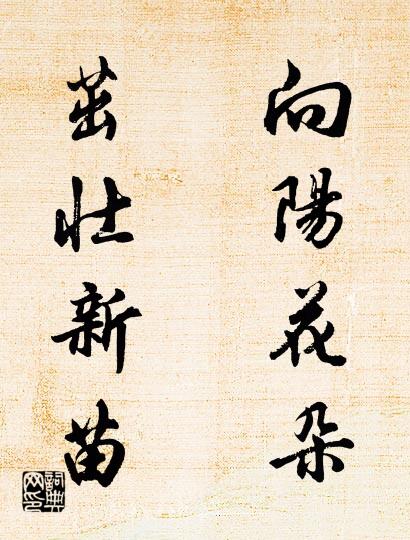 向陽花朵
茁壯新苗
詞典网印